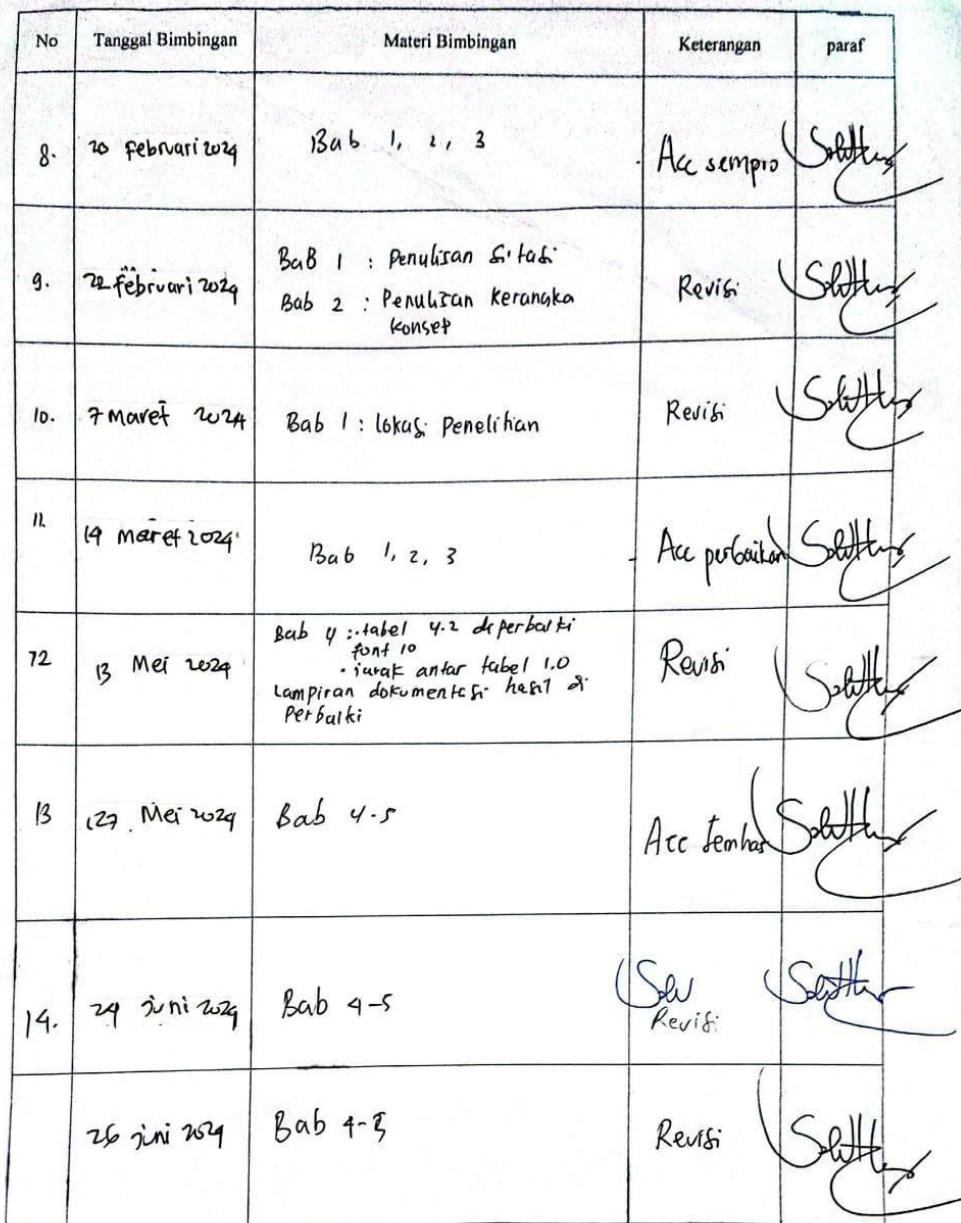 No Tanggal Bimbingan Materi Bimbingan Keterangan paraf
8. 20 Februari 2024 Bab 1, 2, 3 Acc sempro
9. 22 Februari 2024 Bab 1 : Penulisan Sitasi Revisi
Bab 2 : Penulisan kerangka
konsep
10. 7 maret 2024 Bab 1 : lokasi Penelitian Revisi
11. 19 maret 2024 Bab 1, 2, 3 Acc perbaikan
12 13 Mei 2024 Bab 4 : tabel 4.2 diperbaiki Revisi
font 10
· jarak antar tabel 1.0
Lampiran dokumentasi hasil di
Perbaiki
13 27 Mei 2024 Bab 4-5 Acc semhas
14. 24 juni 2024 Bab 4-5 Revisi
26 juni 2024 Bab 4-5 Revisi